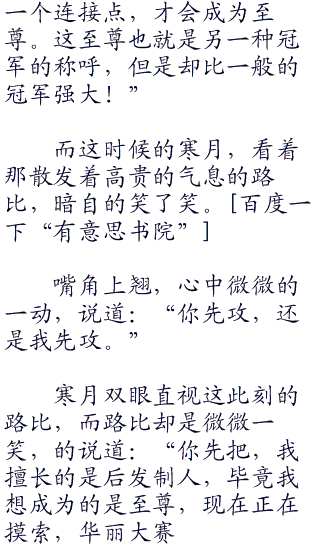 一个连接点，才会成为至
尊。这至尊也就是另一种冠
军的称呼，但是却比一般的
冠军强大！”
而这时候的寒月，看着
那散发着高贵的气息的路
比，暗自的笑了笑。[百度一
下“有意思书院”]
嘴角上翘，心中微微的
一动，说道：“你先攻，还
是我先攻。”
寒月双眼直视这此刻的
路比，而路比却是微微一
笑，的说道：“你先把，我
擅长的是后发制人，毕竟我
想成为的是至尊，现在正在
摸索，华丽大赛